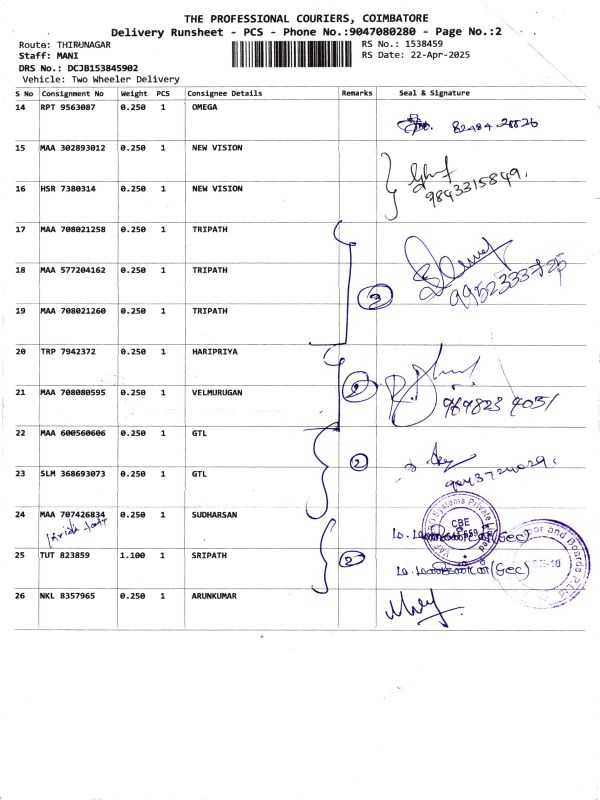 THE PROFESSIONAL COURIERS, COIMBATORE
Delivery Runsheet - PCS - Phone No.:9047080280 - Page No.:2
Route: THIRUNAGAR
RS No.: 1538459
Staff: MANI
RS Date: 22-Apr-2025
DRS No.: DCJB153845902
Vehicle: Two Wheeler Delivery
S No Consignment No Weight PCS Consignee Details Remarks Seal & Signature
14 RPT 9563087 0.250 1 OMEGA
15 MAA 302893012 0.250 1 NEW VISION
16 HSR 7380314 0.250 1 NEW VISION
9843315849.
17 MAA 708021258 0.250 1 TRIPATH
18 MAA 577204162 0.250 1 TRIPATH
3 9952333725
19 MAA 708021260 0.250 1 TRIPATH
20 TRP 7942372 0.250 1 HARIPRIYA
2
21 MAA 708080595 0.250 1 VELMURUGAN
22 MAA 600560606 0.250 1 GTL
2
23 SLM 368693073 0.250 1 GTL
24 MAA 707426834 0.250 1 SUDHARSAN
CBE
(Sec)
25 TUT 823859 1.100 1 SRIPATH
2 (Sec)
26 NKL 8357965 0.250 1 ARUNKUMAR